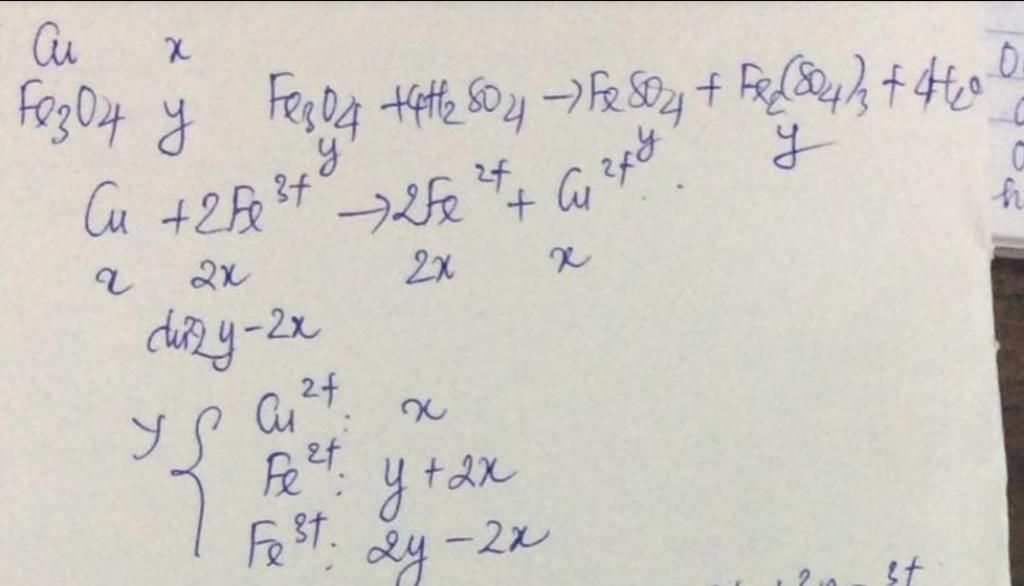 Cu x
Fe3O4 y Fe3O4 + 4H2SO4 → FeSO4 + Fe2(SO4)3 + 4H2O
y y y
Cu + 2Fe3+ → 2Fe2+ + Cu2+.
x 2x 2x x
dư 2y - 2x
Y { Cu2+: x
Fe2+: y + 2x
Fe3+: 2y - 2x
3+